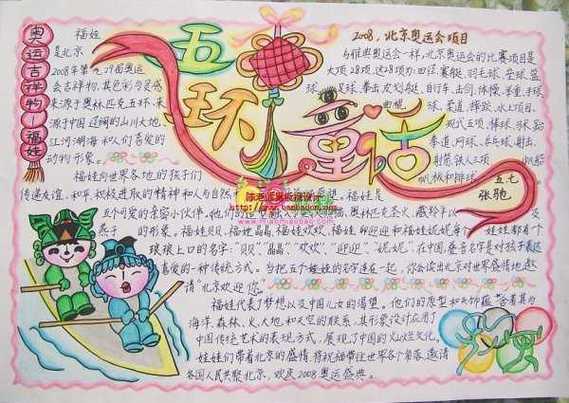 奥运吉祥物—福娃
五环童话
福娃
是北京
2008年第
29届奥运
会吉祥物,其色彩与灵感
来源于奥林匹克五环,来
源于中国辽阔的山川大地、
江河湖海和人们喜爱的
动物形象。
福娃向世界各地的孩子们
传递友谊、和平、积极进取的精神和人与自然
福娃是
五个可爱的亲密小伙伴,他们的
的形象。福娃贝贝、福娃晶晶、福娃欢欢、福娃迎迎和福娃妮妮
娃娃都有个
琅琅上口的名字:“贝贝”、“晶晶”、“欢欢”、“迎迎”、“妮妮”,在中国,叠音名字是对孩子表达
喜爱的一种传统方式。当把五个娃娃的名字连在一起,你会读出北京对世界盛情地邀
请“北京欢迎你”。
福娃代表了梦想以及中国人民的渴望。他们的原型和头饰蕴含着其与
海洋、森林、火、大地和天空的联系,其形象设计应用了
中国传统艺术的表现方式,展现了中国的灿烂文化。
娃娃们带着北京的盛情,将祝福带往世界各个角落,邀请
各国人民共聚北京,欢庆2008奥运盛典。
2008,北京奥运会项目
与雅典奥运会一样,北京奥运会的比赛项目是
大项28项,这28项为:田径、赛艇、羽毛球、垒球、篮
球、足球、拳击、皮划艇、自行车、击剑、体操、举重、手球、
曲棍
球、柔道、摔跤、水上项目、
现代五项、棒球、马术、跆
拳道、网球、乒乓球、射击、
射箭、铁人三项、帆船
帆板和排球
五七
张驰